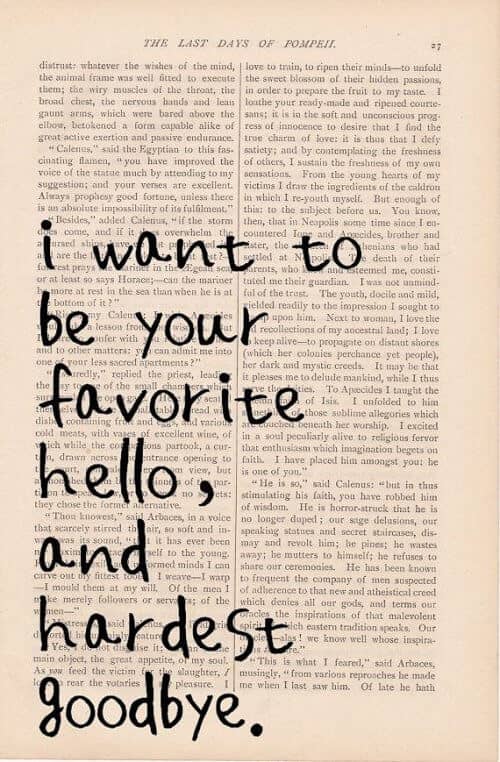 THE LAST DAYS OF POMPEII.
27
i want to
be your
favorite
hello,
and
hardest
goodbye.
distrust: whatever the wishes of the mind,
the animal frame was well fitted to execute
them; the wiry muscles of the throat, the
broad chest, the nervous hands and lean
gaunt arms, which were bared above the
elbow, betokened a form capable alike of
great active exertion and passive endurance.
"Calenus," said the Egyptian to this fas-
cinating flamen, "you have improved the
voice of the statue much by attending to my
suggestion; and your verses are excellent.
Always prophesy good fortune, unless there
is an absolute impossibility of its fulfilment."
"Besides," added Calenus, "if the storm
come, and if it overwhelm the
are the
prays mariner in the Ægean sea
or at least so says Horace;—can the mariner
be more at rest in the sea than when he is at
bottom of it?"
my Calenus
lesson from
confer with
and to other matters: you can admit me into
one of your less sacred apartments?"
replied the priest, lead
the way to one of the small
cold meats, with vases of excellent wine, of
which while the partook, a cur-
drawn across entrance opening to
view, but
they chose the former alternative.
"Thou knowest," said Arbaces, in a voice
that scarcely stirred the air, so soft and in-
its sound, it has ever been
to the young.
minds I can
carve out my fittest tools. I weave—I warp
—I mould them at my will. Of the men I
merely followers or servants; of the
said
main object, the great appetite, of my soul.
As you feed the victim for the slaughter, I
rear the votaries pleasure. I
love to train, to ripen their minds—to unfold
the sweet blossom of their hidden passions,
in order to prepare the fruit to my taste. I
loathe your ready-made and ripened courte-
sans; it is in the soft and unconscious prog-
ress of innocence to desire that I find the
true charm of love: it is thus that I defy
satiety; and by contemplating the freshness
of others, I sustain the freshness of my own
sensations. From the young hearts of my
victims I draw the ingredients of the caldron
in which I re-youth myself. But enough of
this: to the subject before us. You know,
then, that in Neapolis some time since I en-
countered Ione and Apæcides, brother and
sister, the Athenians who had
settled at Neapolis. The death of their
parents, who knew and esteemed me, consti-
tuted me their guardian. I was not unmind-
ful of the trust. The youth, docile and mild,
yielded readily to the impression I sought to
upon him. Next to woman, I love the
recollections of my ancestral land; I love
keep alive—to propagate on distant shores
(which her colonies perchance yet people),
her dark and mystic creeds. It may be that
it pleases me to delude mankind, while I thus
serve the deities. To Apæcides I taught the
of Isis. I unfolded to him
those sublime allegories which
are couched beneath her worship. I excited
in a soul peculiarly alive to religious fervor
that enthusiasm which imagination begets on
faith. I have placed him amongst you: he
is one of you."
"He is so," said Calenus: "but in thus
stimulating his faith, you have robbed him
of wisdom. He is horror-struck that he is
no longer duped; our sage delusions, our
speaking statues and secret staircases, dis-
may and revolt him; he pines; he wastes
away; he mutters to himself; he refuses to
share our ceremonies. He has been known
to frequent the company of men suspected
of adherence to that new and atheistical creed
which denies all our gods, and terms our
oracles the inspirations of that malevolent
spirit of which eastern tradition speaks. Our
oracles—alas! we know well whose inspira-
"This is what I feared," said Arbaces,
musingly, "from various reproaches he made
me when I last saw him. Of late he hath